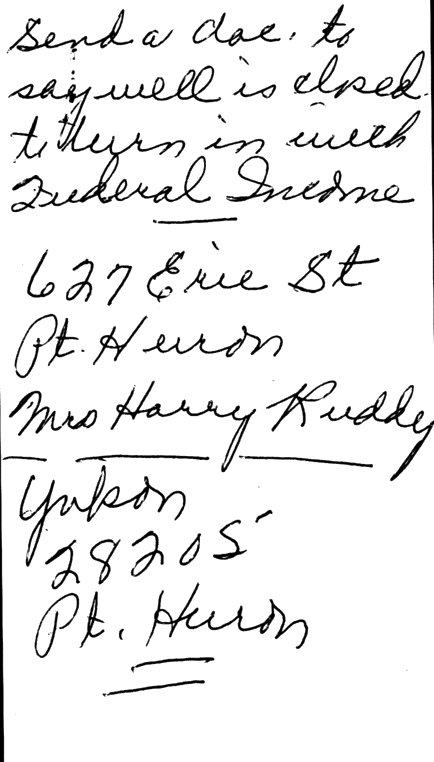 Send a doc. to
say well is closed
to turn in with
Federal Income
627 Erie St
Pt. Huron
Mrs Harry Ruddy
Yukon
28205
Pt. Huron